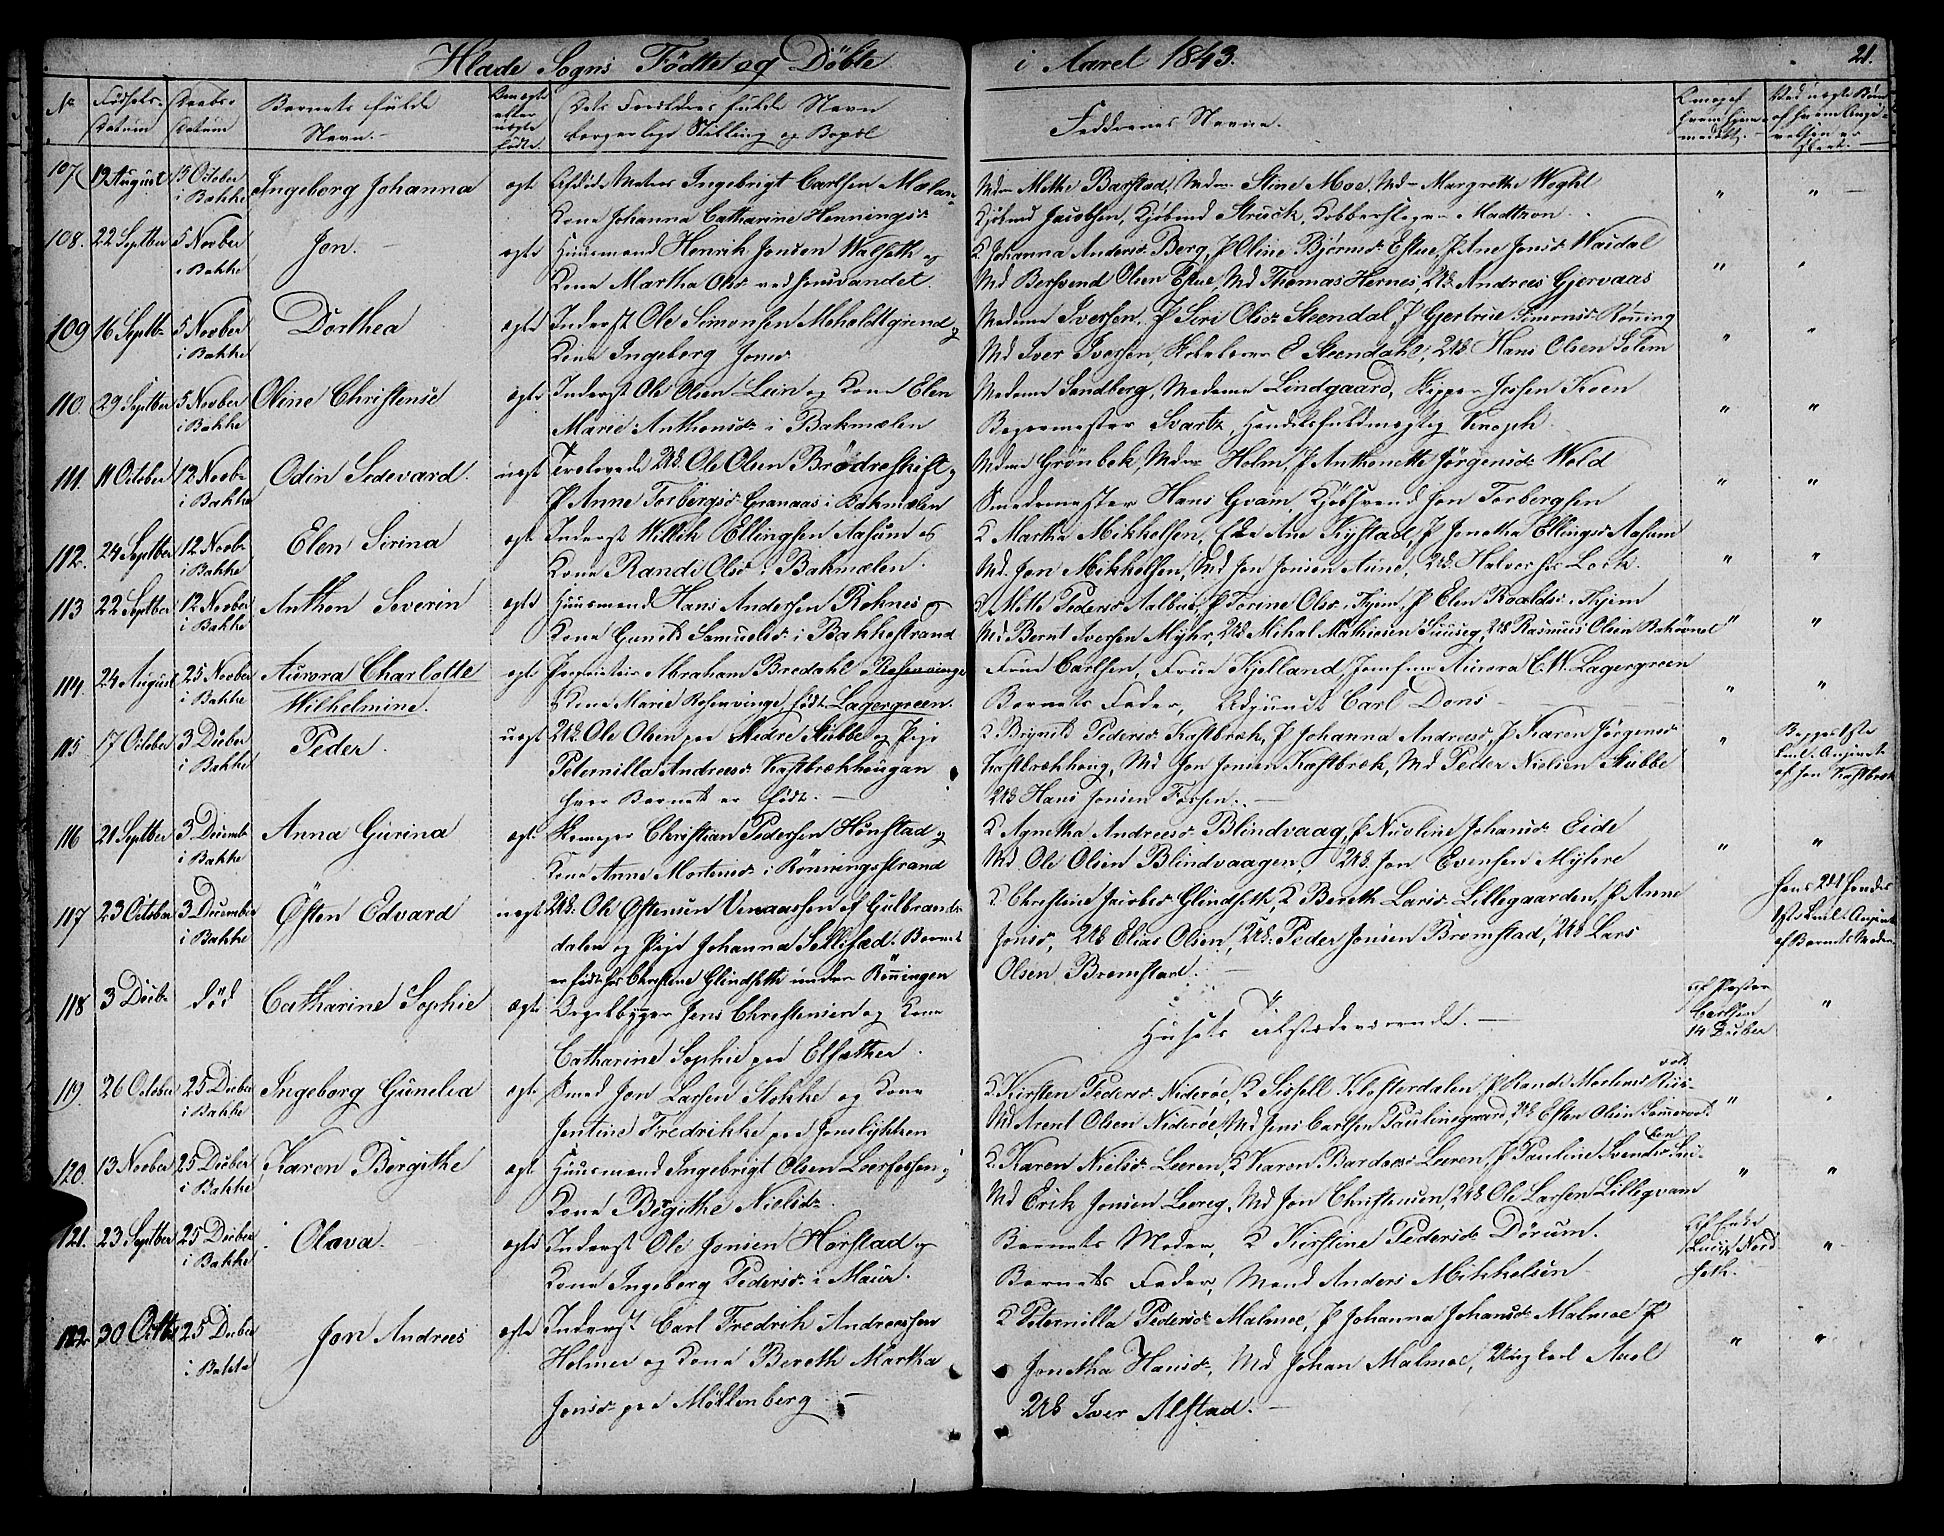 Hlade Sogns Födte og Döbte i Aaret 1843. 21.
No Fødsels- Datum Daabs- Datum Barnets fulde Navn.- Om ægte eller uægte födte. Dets Forældres fulde Navn borgerlige Stilling og Bopæl Faddernes Navne.
107 19 August 15 October i Bakke Ingeborg Johanna ægte Ingebrigt Carlsen
Kone Johanna Catharine Hennings- Mdm Methe Barstad, Mdm Stine Moe, Mdm Margrethe Weghl
Kjöbmd Jacobsen, Kjöbmd Struck, Kobberslager Madtzon
108. 22 Septber 5 Novber i Bakke Jon. ægte Huusmand Henrik Jonsen Walseth og
Kone Martha Olsd ved Jonsvandet. K Johanna Andersd Berg, P Oline Bjørnsd Estue, P Ane Jonsd Waidal
Md Berhsend Olsen Estue, Md Thomas Hernes, Uk Andreas Gjervaas
109 16 Septb 5 Novber i Bakke Dorthea ægte Inderst Ole Simonsen Moholdtgrind og
Kone Ingeborg Jonsd Madame Iversen, P Siri Olsd Steendal, P Gjertrue Simonsd Rönning
Md Iver Iversen, E Steendahl, Uk Hans Olsen Solem
110. 29 Septber 5 Novber i Bakke Oline Christense ægte Inderst Ole Olsen Lein og Kone Elen
Marie Anthonsd i Bakmælen Madame Sandberg, Madame Lindgaard, Skipper Jessen Koen
Bagermester Svartz, Handelsfuldmægtig Knoph.
111. 11 October 12 Novb i Bakke Odin Sedevard. uægt Uk. Ole Olsen Brødreskift og
P Anne Torbergsd Granaas i Bakmælen Mdme Grönbek, Mdm Holm, P Anthonette Jörgensd Wold
Smedemester Hans Gvam, Kjöbsvend Jon Torbergsen
112. 24 Septber 12 Novb i Bakke Elen Sirina ægt Inderst Willik Ellingsen Aasum og
Kone Randi Olsd i Bakmælen. K Martha Mikkelsen, Eke Ane Kystad, P Jonetha Ellingsd Aasum
Md. Jon Mikkelsen, Md Jon Jonsen Aune, Uk. Halvor Leek.
113 22 Septber 12 Novber i Bakke Anthon Severin ægte Huusmand Hans Andersen Rohnes og
Kone Gunild Samuelsd i Bakkestrand K Mette Pedersd Aalbue, P Torine Olsd Thjem, P Elen Roaldsd Thjem
Md Bernt Iversen Myhr, Uk Mikal Mathiesen Suuseg, Uk Rasmus Olsen Bakövnel
114. 24 August 25 Novber i Bakke Aurora Charlotte
Wilhelmine. ægte Proprietair Abraham Bredahl Rosenvinge
Kone Marie Rosenvinge, födt Lagergreen. Frue Carlsen, Frue Kjelland, Jomfrue Aurora C. W. Lagergreen
Barnets Fader, Adjunct Carl Dons
115 17 October 3 Decber i Bakke Peder. uægt Uk Ole Olsen paa Nedre Stubbe og Pige
Peternilla Andreasd Kastbrækhougan
hvor Barnet er födt. K Brynild Pedersd Kastbræk, P Johanna Andreasd, P Karen Jörgensd
Kastbrækhoug, Md Jon Jonsen Kastbræk, Md Peder Nielsen Stubbe
Uk Hans Jonsen Fossen. Begges 1ste Leierm. Angivet af Jon Kastbræk
116 21 Septber 3 Decemb i Bakke Anna Gurina ægte Skomager Christian Pedersen Hönstad og
Kone Anne Mortensd i Rönningsstrand K Agnetha Andreasd Blindvaag, P Nicoline Johansd Eide
Md. Ole Olsen Blindvaagen, Uk. Jon Evensen Myhre
117 23 October 3 December i Bakke Östen Edvard uægt Uk. Ole Östensen Venaassen af Gulbrands-
dalen og Pige Johanna Barnet
er födt hos Christine Glindseth under Rönningen K Christine Jacobsd Glindseth, K Bereth Larsd Lillegaarden, P Anne
Jonsd, Uk Elias Olsen, Uk. Peder Jonsen Bromstad, Uk Lars
Olsen Bromstad. hans 2det hendes 1ste Leierm. Angivet af Barnets Moder
118 3 Decb död Catharine Sophie ægte Orgelbygger Jens Christensen og Kone
Catharine Sophie paa Elsæther. Husets Tilstedeværende. af Pastor Carlsen 14 Decber
119. 26 October 25 Decber i Bakke Ingeborg Gunelia ægte Smed Jon Larsen Stokke og Kone
Jentine Fredrikke paa Jonslykken K Kirsten Pedersd Nideröe, K Sissell Klosterdalen, P Randi
Md Arent Olsen Nideröe, Md Jens Carlsen Paulinegaard, Uk Esten Olsen
120. 13 Novber 25 Decber i Bakke Karen Bergithe ægte Huusmand Ingebrigt Olsen Leerfossen og
Kone Birgithe Nielsd K. Karen Nielsd Leeren, K Karen Bardosd Leeren, P Pauline Svendsd
Md Erik Jonsen Leereg, Md Jon Christensen, Uk Ole Larsen Lillegvam
121. 23 Septber 25 Decber i Bakke Olava. ægte Inderst Ole Jonsen Harstad og
Kone Ingeborg Pedersd i Maur. Barnets Moder, K Kirstine Pedersd Dörum.
Barnets Fader, Mand Anders Mikkelsen
122. 30 Octb 25 Decber i Bakke Jon Andreas ægte Inderst Carl Fredrik Andreassen
Holmer og Kone Bereth Martha
Jonsd paa Möllenberg K Peternilla Pedersd Malmoe, P Johanna Johansd Malmoe P
Jonetha Hansd, Md Johan Malmoe, Ungkarl Axel
Uk Iver Alstad.